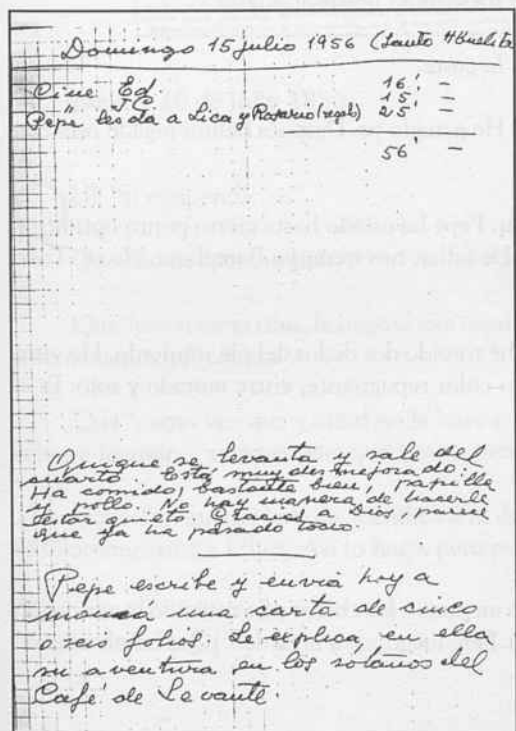 Domingo 15 julio 1956 (Santo Abuelita
Cine Ed 16' -
" J C. 15' -
Pepe les da a Lica y Rosario (regalo) 25' -
56' -
Quique se levanta y sale del
cuarto. Está muy desmejorado.
Ha comido, bastante bien, papilla
y pollo. No hay manera de hacerle
estar quieto. Gracias a Dios, parece
que ya ha pasado todo.
Pepe escribe y envía hoy a
una carta de cinco
o seis folios. Le explica, en ella
su aventura en los sótanos del
Café de Levante.